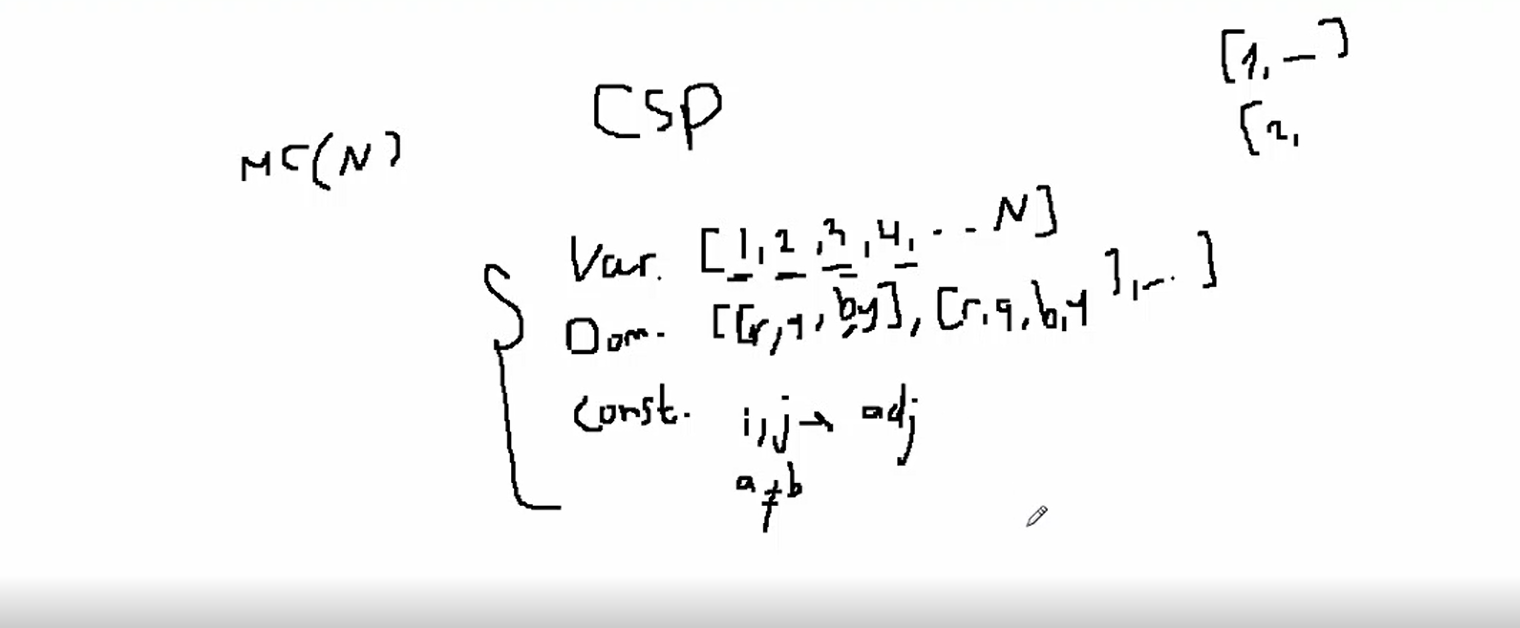 [1, —]
CSP
[2,
MC(N)
Var. [1, 2, 3, 4, .. N]
Dom. [[r, g, b y], [r, g, b, y], -.. ]
Const. i, j → adj
a ≠ b